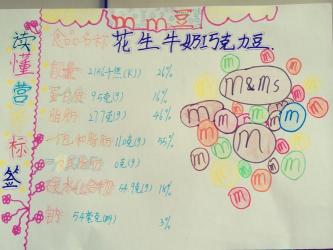 读懂营养标签
mm豆
食品名称 花生牛奶巧克力豆
能量: 2146千焦(KJ) 26%
蛋白质 9.5克(g) 16%
脂肪: 27.7克(g) 46%
一饱和脂肪 11.0克(g) 55%
一反式脂肪 0克(g)
碳水化合物 54.9克(g) 18%
钠: 54毫克(mg) 3%
m&m's
m
m
m
m
m
m
m
m
m
m
m
m
m